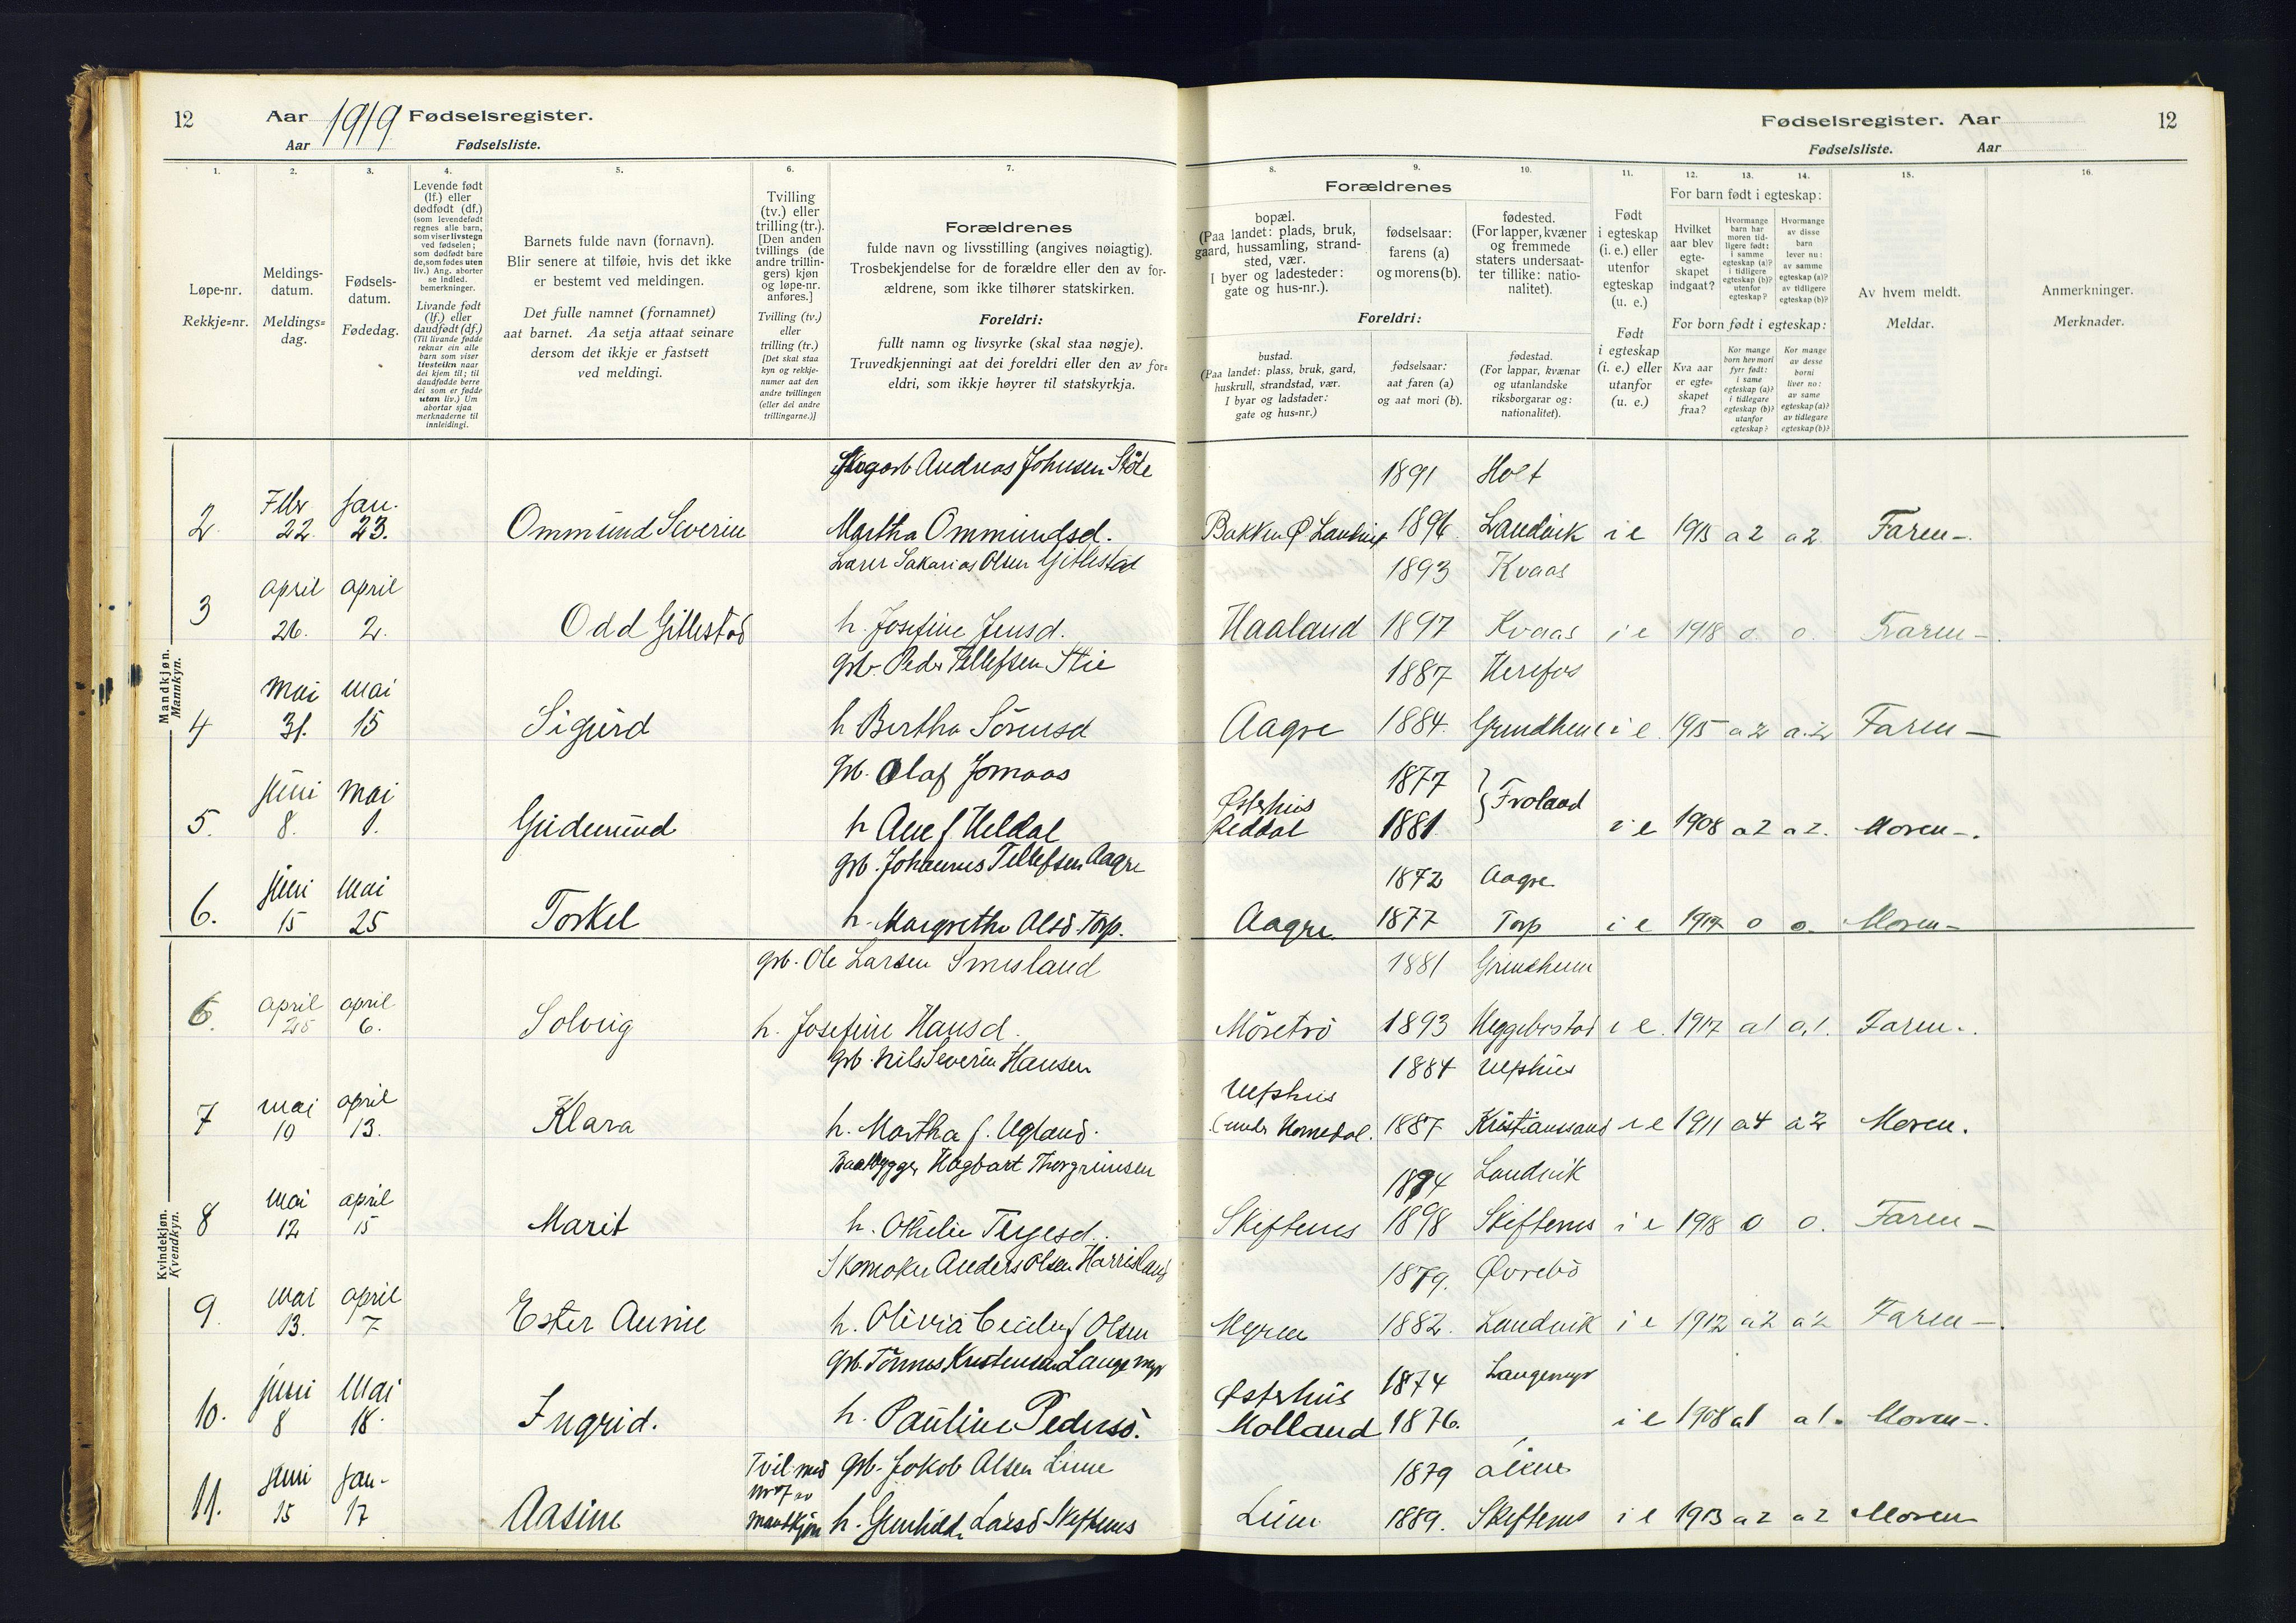 12
Aar 1919 Fødselsregister.
Aar Fødselsliste.
Fødselsregister. Aar
12
Fødselsliste. Aar
1.
2.
3.
4.
5.
6.
7.
8.
9.
10.
11.
12.
13.
14.
15.
16.
Løpe-nr.
Rekkje=nr.
Meldings-
datum.
Meldings=
dag.
Fødsels-
datum.
Fødedag.
Levende født
(lf.) eller
dødfødt (df.)
(som levendefødt
regnes alle barn,
som viser livstegn
ved fødselen;
som dødfødt bare
de, som fødes uten
liv.) Ang. aborter
se indled.
bemerkninger.
Livande født
(lf.) eller
daudfødt (df.)
(Til livande fødde
reknar ein alle
barn som viser
livsteikn naar
dei kjem til; til
daudfødde berre
dei som er fødde
utan liv.) Um
abortar sjaa
merknaderne til
innleidingi.
Barnets fulde navn (fornavn).
Blir senere at tilføie, hvis det ikke
er bestemt ved meldingen.
Det fulle namnet (fornamnet)
aat barnet. Aa setja attaat seinare
dersom det ikkje er fastsett
ved meldingi.
Tvilling
(tv.) eller
trilling (tr.).
[Den anden
tvillings (de
andre trillin-
gers) kjøn
og løpe-nr.
anføres.]
Tvilling (tv.)
eller
trilling (tr.)
[Det skal staa
kyn og rekkje-
numer aat den
andre tvillingen
(eller dei andre
trillingarne.)]
Forældrenes
fulde navn og livsstilling (angives nøiagtig).
Trosbekjendelse for de forældre eller den av for-
ældrene, som ikke tilhører statskirken.
Foreldri:
fullt namn og livsyrke (skal staa nøgje).
Truvedkjenningi aat dei foreldri eller den av for=
eldri, som ikkje høyrer til statskyrkja.
Forældrenes
bopæl.
(Paa landet: plads, bruk,
gaard, hussamling, strand-
sted, vær.
I byer og ladesteder:
gate og hus-nr.).
fødselsaar:
farens (a)
og morens (b).
fødested.
(For lapper, kvæner
og fremmede
staters undersaat-
ter tillike: natio-
nalitet).
Foreldri:
bustad.
(Paa landet: plass, bruk, gard,
huskrull, strandstad, vær.
I byar og ladstader:
gate og hus=nr.)
fødselsaar:
aat faren (a)
og aat mori (b).
fødestad.
(For lappar, kvænar
og utanlandske
riksborgarar og:
nationalitet).
Født
i egteskap
(i. e.) eller
utenfor
egteskap
(u. e.)
Født
i egteskap
(i. e.) eller
utanfor
(u. e.)
For barn født i egteskap:
Hvilket
aar blev
egte-
skapet
indgaat?
Hvormange
barn har
moren tid-
ligere født:
i samme
egteskap (a)?
i tidligere
egteskap (b)?
utenfor
egteskap?
Hvormange
av disse
barn
lever nu:
av samme
egteskap (a)?
av tidligere
egteskap (b)?
For born født i egteskap:
Kva aar
er egte=
skapet
fraa?
Kor mange
born hev mori
fyrr født:
i same
egteskap (a)?
i tidlegare
egteskap (b)?
utanfor
egteskap?
Kor mange
av desse
borni
liver no:
av same
egteskap (a)?
av tidlegare
egteskap (b)?
Av hvem meldt.
Meldar.
Anmerkninger.
Merknader.
Mandkjøn.
Mannkyn.
Andreas Johnsen Støle 1891 Holt
2 Febr 22. Jan. 23. Ommund Severin Martha Ommundsd. Bakken Ø Landvik 1896 Landvik i e 1913 a 2 a 2 Faren
Lærer Sakarias Olsen Gitlestad 1893 Kvaas
3 April 26. April 2. Odd Gitlestad h. Josefine Jensd. Haaland 1897 Kvaas i e 1918 o. o. Faren
grb. Peder Tellefsen Stie 1887 Herefos
4 Mai 31. Mai 15 Sigurd h Bertha Sørensd Aagre 1884. i e 1915 a 2 a. 2 Faren
grb. Olaf Jomaas 1877
5. Juni 8. Mai 1. Gudmund h Ane f Heldal Østerhus Reddal 1881 Froland i e 1908 a 2 a 2. Moren
grb. Johannes Tellefsen Aagre 1872 Aagre
6. Juni 15 Mai 25 Torkel h. Margrethe Olsd Torp. Aagre 1877 Torp i e 1917 o o. Moren
Kvindekjøn.
Kvendkyn.
grb. Ole Larsen Smisland 1881 Grindheim
6. April 25 April 6. Solveig h. Josefine Hansd. Møretrø 1893 Heggebostad i e 1917 a 1 a. 1. Faren.
grb. Nils Severin Hansen 1884 Ulfshus
7 Mai 10 April 13. Klara h. Martha f. Ugland. Ulfshus (under Homedal. 1887 Kristianssand i e 1911 a 4 a 2 Moren.
Baatbygger Hagbart Thorgrimsen 1894 Landvik
8 Mai 12 April 15 Marit h. Othilie Terjesd. Skiftenes 1898 Skiftenes i e 1918 o o. Faren
Skomaker Anders Olsen Harrisland 1879. Øvrebø
9. Mai 13. April 7 Ester Annie h. Olivia Cecilie f Olsen Myren 1882. Landvik i e 1912 a 2 a 2 Faren
grb. Tønnes Kristensen Langemyr 1874 Langemyr
10. Juni 8 Mai 18. Ingrid. h. Pauline Pedersd. Østerhus Molland 1876. i e 1908 a 1 a 1. Moren
Tvil. med nr 7 av Mandkjøn grb. Jakob Olsen Liene 1879 Liene
11. Juni 15 Jan. 17 Aasine h. Gunhild Larsd Skiftenes Liene 1889. Skiftenes i e 1913 a 2 a 2 Moren